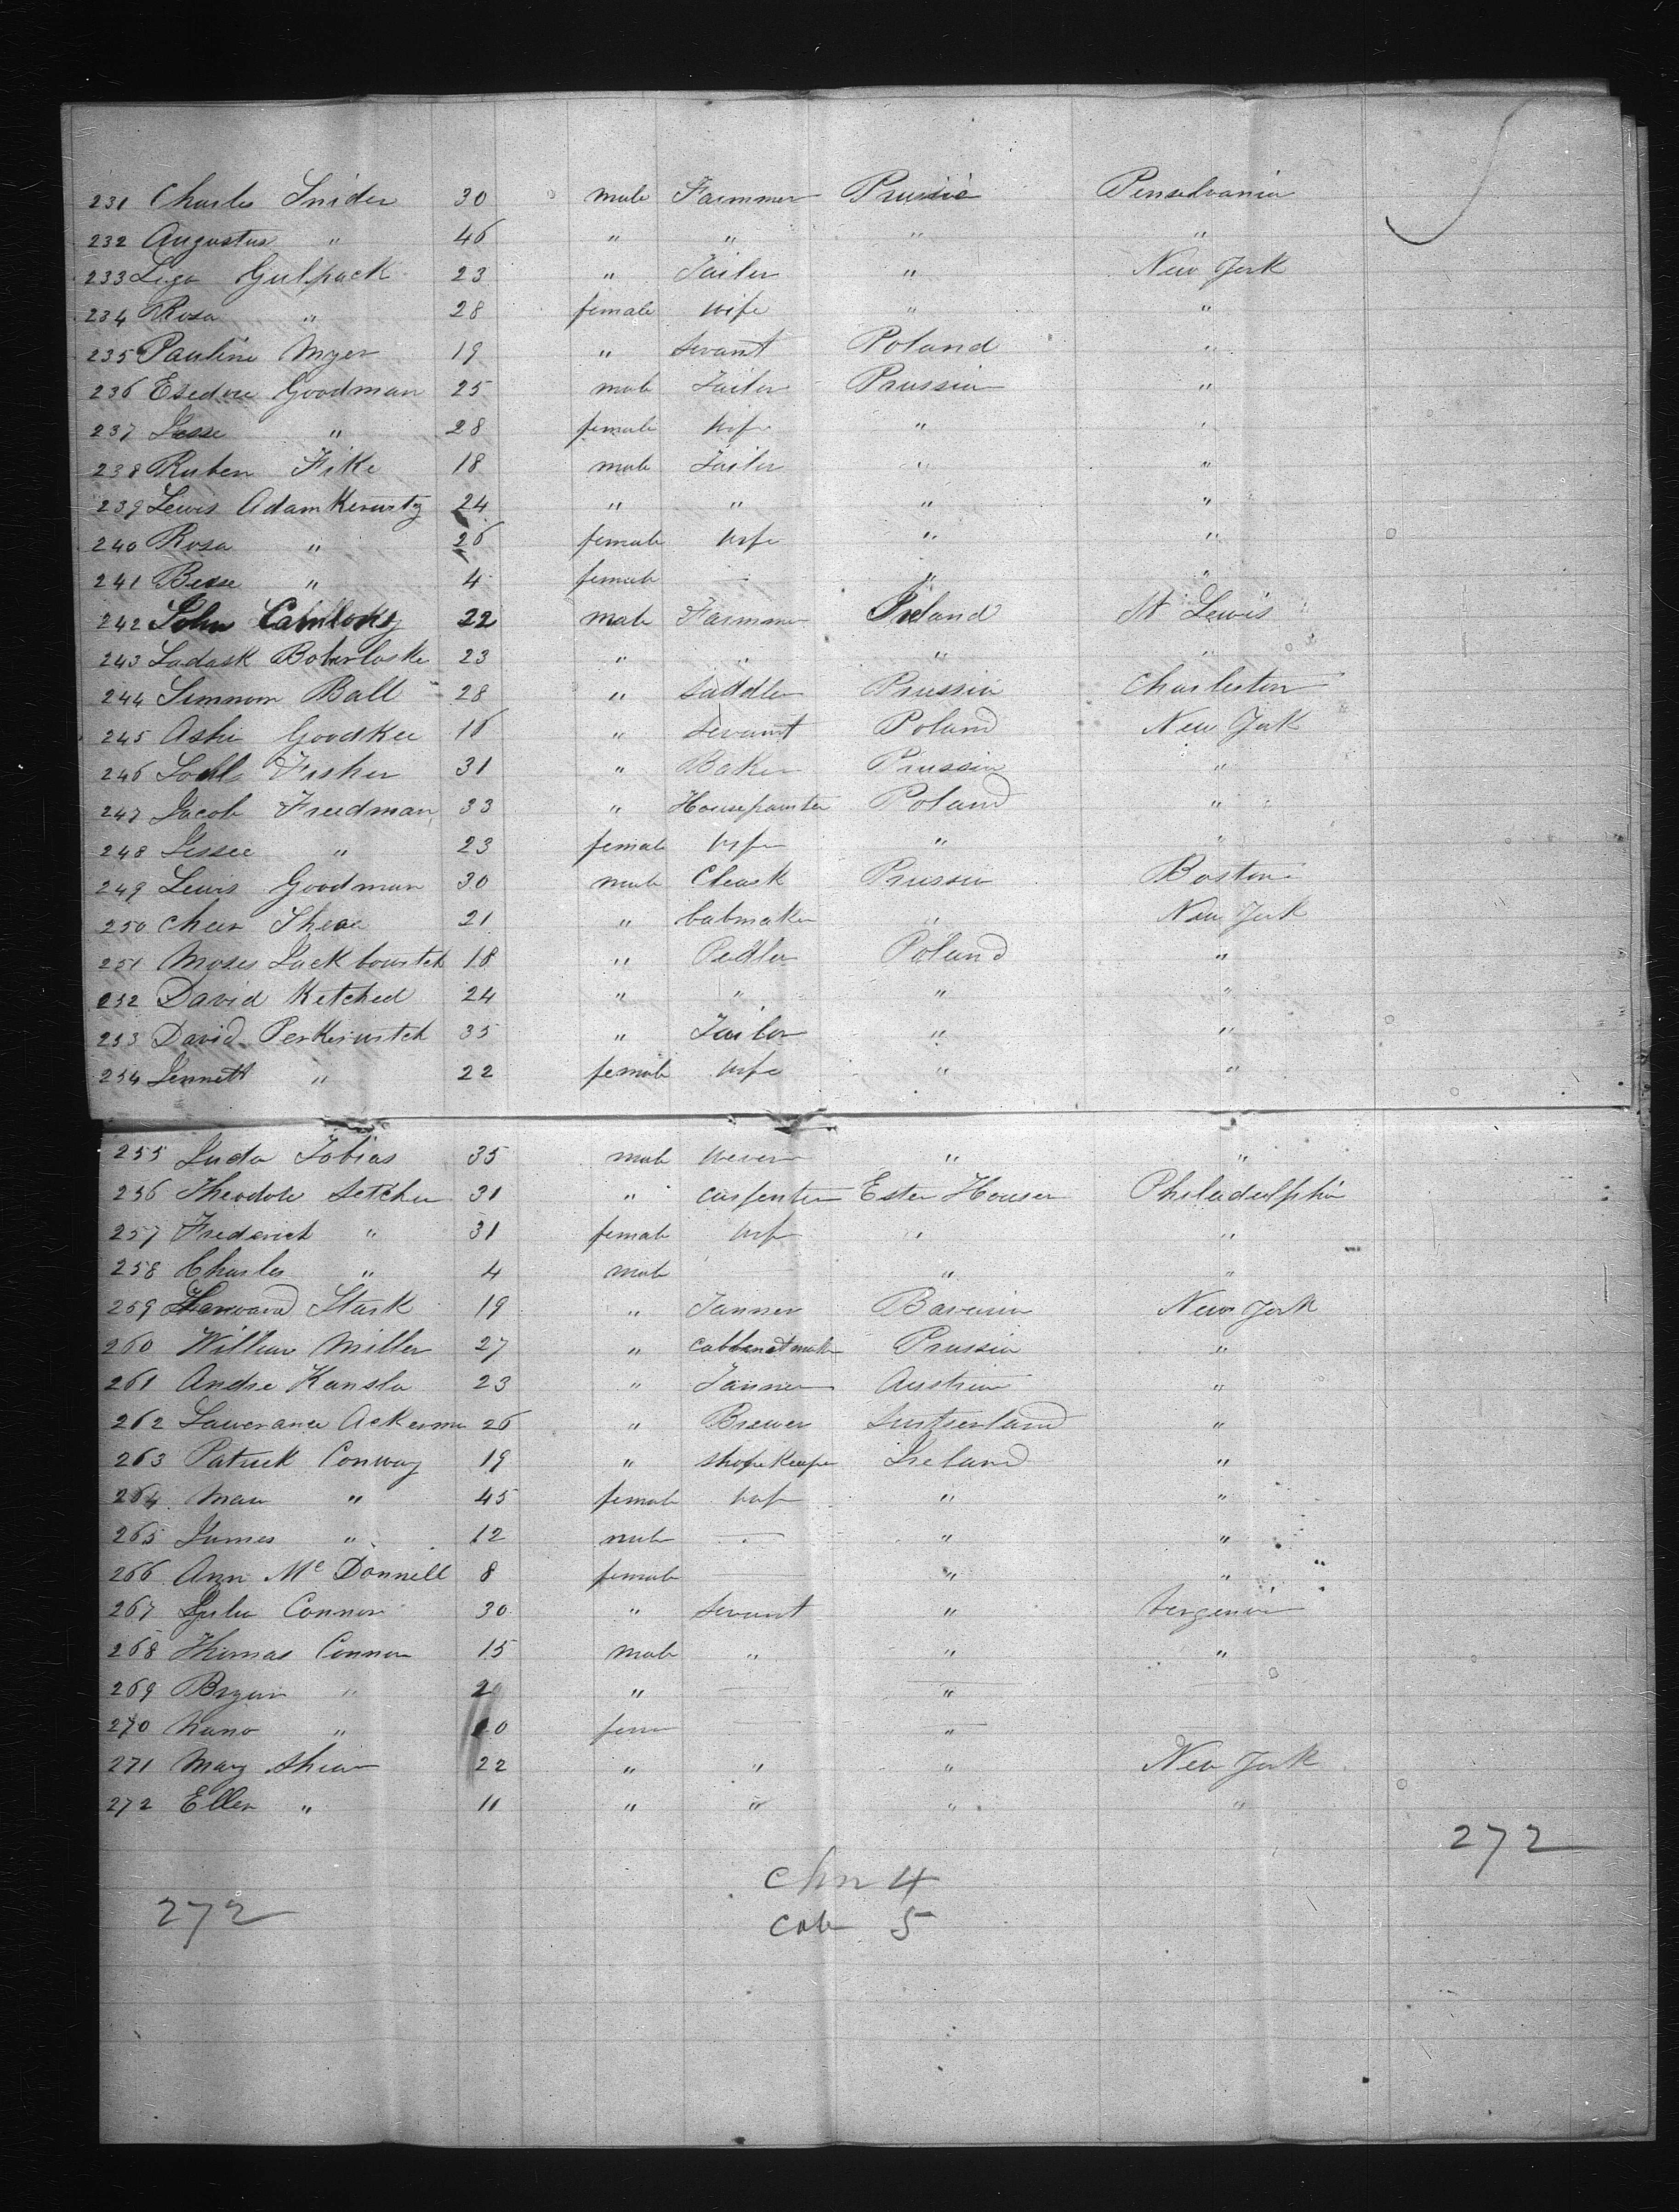 231 Charles Snider 30 male Farmmer Prussia Penselvania
232 Augustus " 46 " " " "
233 Liga Gulpack 23 " Tailer " New York
234 Rosa " 28 female wife " "
235 Pauline Myer 19 " servant Poland "
236 Esedore Goodman 25 male Tailor Prussia "
237 Jesse " 28 female wife " "
238 Ruben Fike 18 male Tailor " "
239 Lewis Adamkerwitz 24 " " " "
240 Rosa " 26 female wife " "
241 Besse " 4 female " "
242 John 22 male Farmmer Ireland St Lewis
243 Ladask Boberloske 23 " " " "
244 Simmom Ball 28 " saddler Prussia Charleston
245 Ashi Goodkee 16 " servant Poland New York
246 Fisher 31 " Baker Prussia "
247 Jacob Freedman 33 " Housepainter Poland "
248 Jessee " 23 female wife " "
249 Lewis Goodman 30 male Cleark Prussia Boston
250 21 " cabmaker " New York
251 Moses Jackbowitch 18 " Pedler Poland "
252 David Ketched 24 " " " "
253 David Perkiruitch 35 " Tailor " "
254 Jennett " 22 female wife " "
255 Juda Tobias 35 male wever " "
256 Theodore Setcher 31 " carpenter Ester Houser Philadelphia
257 Frederick " 31 female wife " "
258 Charles " 4 male " "
259 Stark 19 " Tanner Bavaria New York
260 William Miller 27 " cabbenetmaker Prussia "
261 Andre Kansla 23 " Tanner Austria "
262 Lawerance Ackerma 26 " Brewer Switserland "
263 Patrick Conway 19 " shopekeeper Ireland "
264 " 45 female wife " "
265 James " 12 male — " "
266 Ann Mc Donnell 8 female — " "
267 Julia Connor 30 " servant " Vergenia
268 Thomas Connor 15 male " " "
269 Bryan " 20 " — "
270 Nano " 10 fem — "
271 Mary Shean 22 " " " New York
272 Ellen " 11 " " " "
272
chn 4
272
cab 5